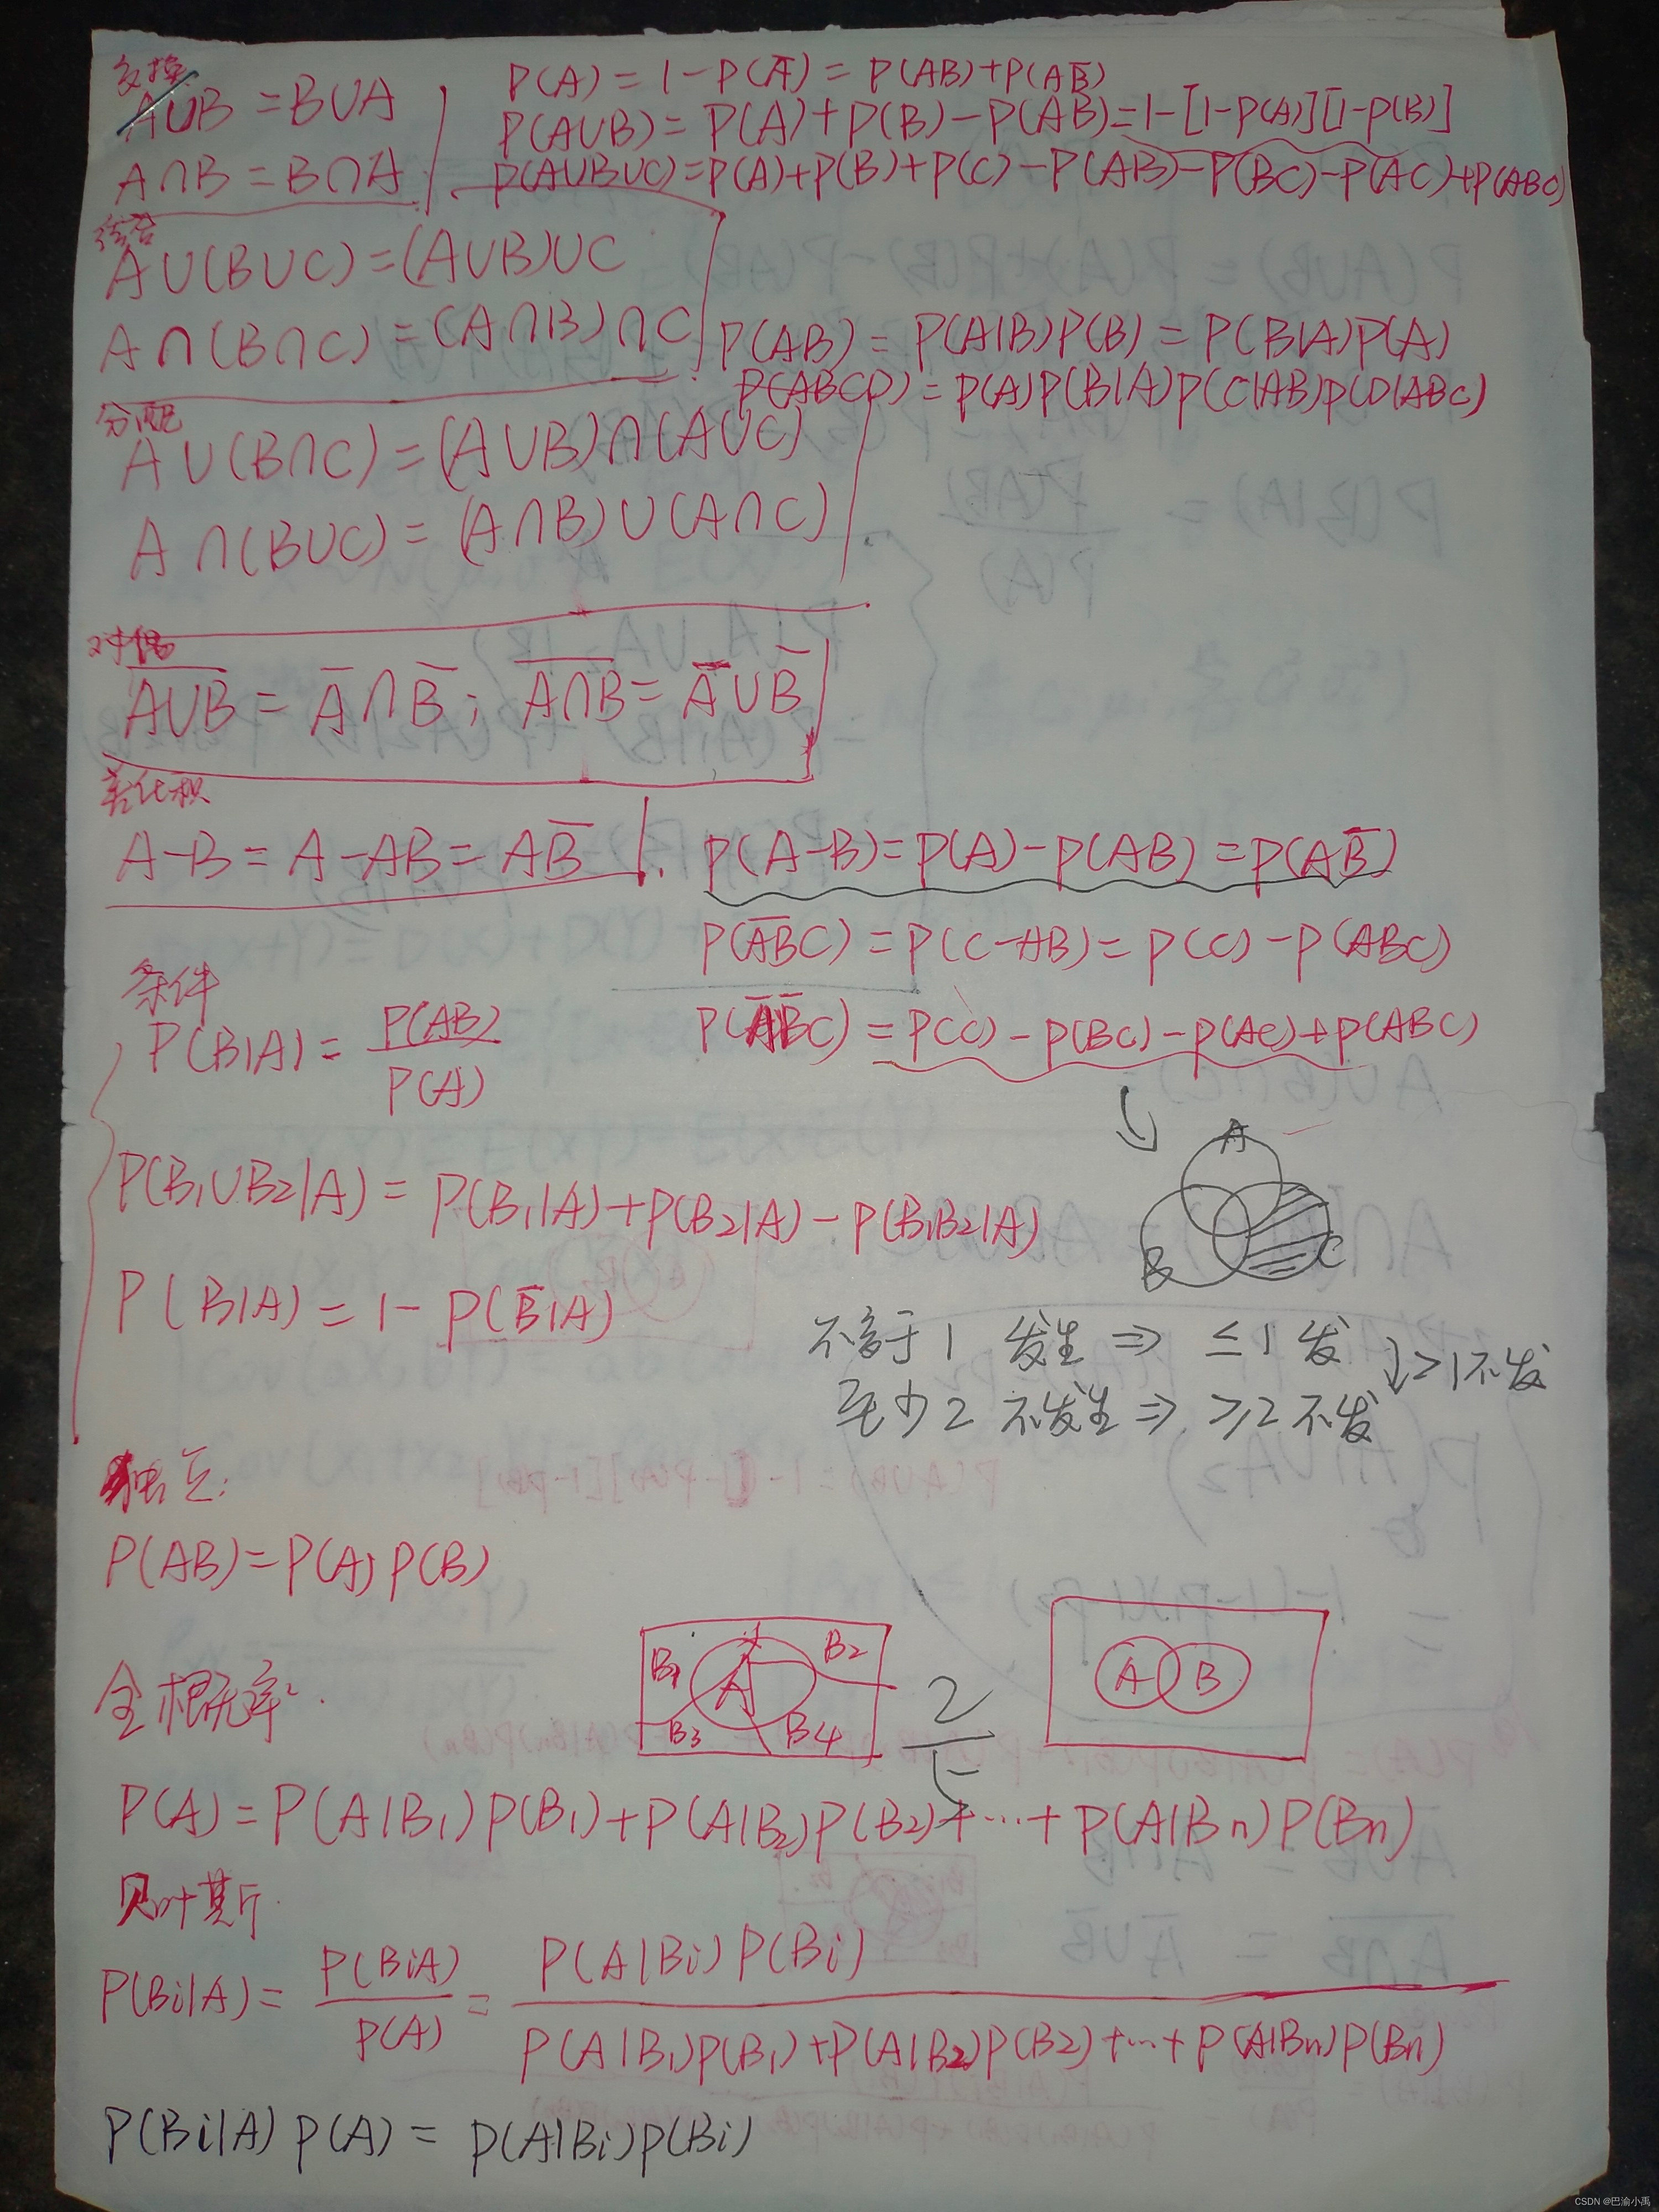 交换
A∪B = B∪A
A∩B = B∩A
P(A) = 1-P(A̅) = P(AB)+P(AB̅)
P(A∪B) = P(A)+P(B)-P(AB)=1-[1-P(A)][1-P(B)]
P(A∪B∪C)=P(A)+P(B)+P(C)-P(AB)-P(BC)-P(AC)+P(ABC)
结合
A∪(B∪C)=(A∪B)∪C
A∩(B∩C)=(A∩B)∩C
P(AB) = P(A|B)P(B) = P(B|A)P(A)
P(ABCD) = P(A)P(B|A)P(C|AB)P(D|ABC)
分配
A∪(B∩C)=(A∪B)∩(A∪C)
A∩(B∪C)=(A∩B)∪(A∩C)
对偶
\overline{A∪B} = A̅∩B̅; \overline{A∩B} = A̅∪B̅
差化积
A-B = A-AB = AB̅
P(A-B)=P(A)-P(AB)=P(AB̅)
P(\overline{AB}C)=P(C-AB)=P(C)-P(ABC)
P(A̅B̅C)=P(C)-P(BC)-P(AC)+P(ABC)
条件
P(B|A) = \frac{P(AB)}{P(A)}
P(B₁∪B₂|A) = P(B₁|A)+P(B₂|A)-P(B₁B₂|A)
P(B|A) = 1-P(B̅|A)
A
B
C
不多于1 发生 ⇒ ≤1 发
>1不发
至少2 不发生 ⇒ ≥2 不发
独立:
P(AB)=P(A)P(B)
全概率:
B₁
B₂
A
B₃
B₄
2
A
B
P(A)=P(A|B₁)P(B₁)+P(A|B₂)P(B₂)+…+P(A|Bn)P(Bn)
贝叶斯
P(Bi|A)= \frac{P(BiA)}{P(A)} = \frac{P(A|Bi)P(Bi)}{P(A|B₁)P(B₁)+P(A|B₂)P(B₂)+…+P(A|Bn)P(Bn)}
P(Bi|A)P(A) = P(A|Bi)P(Bi)
CSDN @巴渝小禹